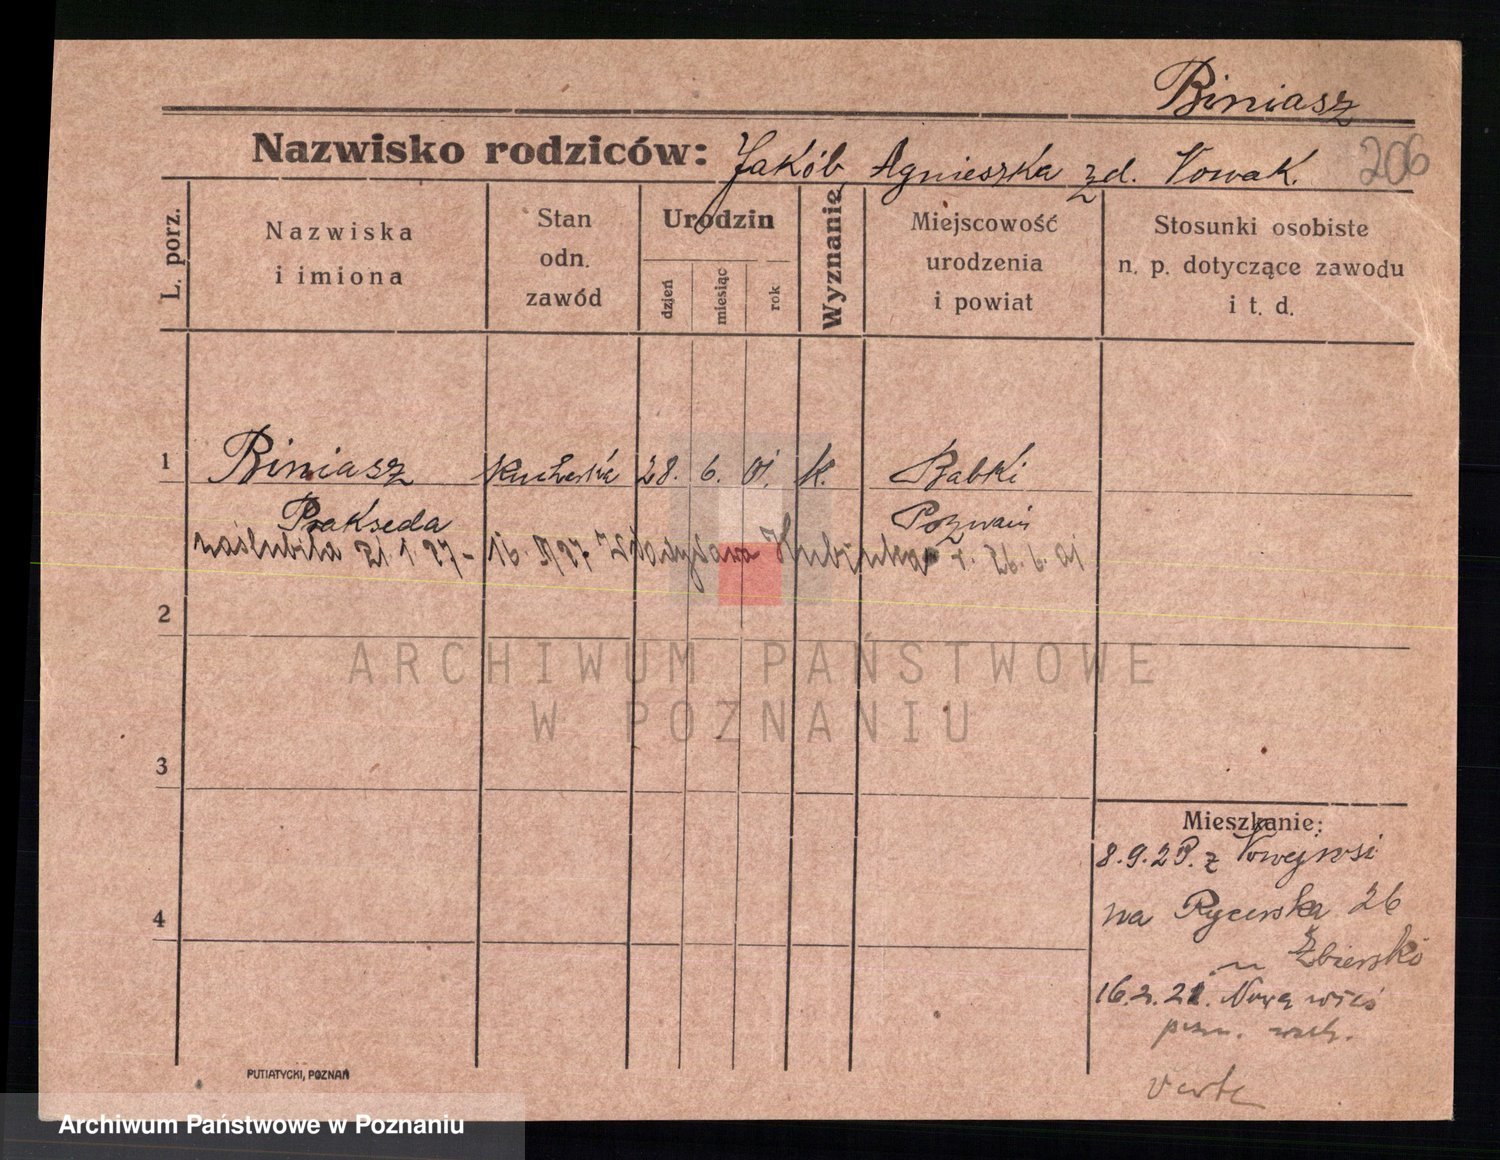 Biniasz
Nazwisko rodziców: Jakób, Agnieszka zd. Nowak.
206
L. porz.
Nazwiska
i imiona
Stan
odn.
zawód
Urodzin
dzień
miesiąc
rok
Wyznanie
Miejscowość
urodzenia
i powiat
Stosunki osobiste
n. p. dotyczące zawodu
i t. d.
1
Biniasz
Kucharka
28.
6.
01.
K.
Babki
Prakseda
Poznań
zaślubiła
2
ARCHIWUM PAŃSTWOWE
W POZNANIU
3
Mieszkanie:
8.9.23. z Nowejwsi
4
na Rycerska 26
u Zbierski
16.2.21. Nową wieś
pozn. wsch.
verte
PUTIATYCKI, POZNAŃ
Archiwum Państwowe w Poznaniu